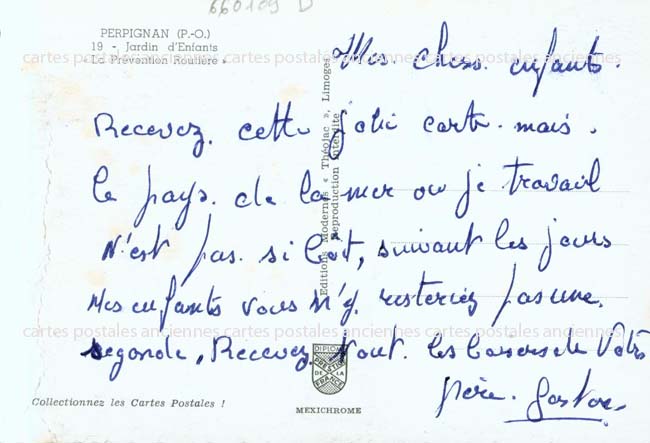 660109 D
PERPIGNAN (P.-O.)
19 - Jardin d'Enfants
« La Prévention Routière »
Mes. chers. enfants.
Recevez. cette jolie carte. mais.
le pays. de la mer ou je travail
N'est pas. si , suivant les jours
Mes enfants vous n'y. resteriez pas une.
segonde, Recevez tout. les baisers de Votre
père. Gaston.
Editions Modernes « Théojac », Limoges
Reproduction interdite
DIPLOME
PRESTIGE
DE LA
FRANCE
MEXICHROME
Collectionnez les Cartes Postales !
cartes postales anciennes cartes postales anciennes cartes postales
cartes postales anciennes cartes postales anciennes cartes postales